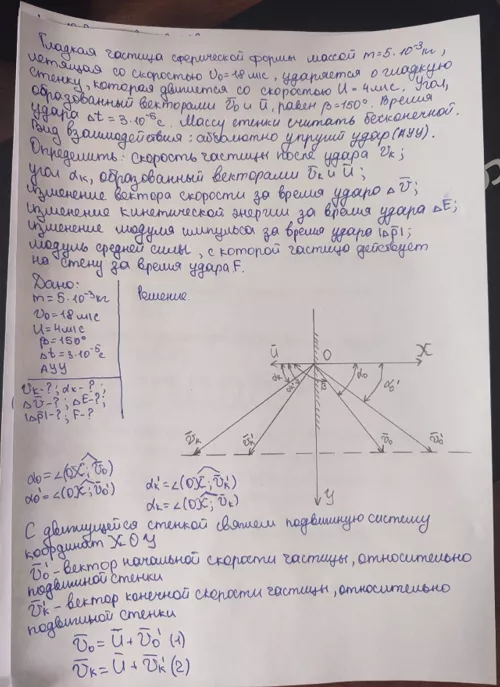 Гладкая частица сферической формы массой m=5·10⁻³кг,
летящая со скоростью υ₀=18м/с, ударяется о гладкую
стенку, которая движется со скоростью U=4м/с. Угол,
образованный векторами υ̅₀ и u̅, равен β=150°. Время
удара Δt=3·10⁻⁶с. Массу стенки считать бесконечной.
Вид взаимодействия: абсолютно упругий удар (АУУ).
Определить: скорость частицы после удара υₖ;
угол αₖ, образованный векторами υ̅ₖ и U̅;
изменение вектора скорости за время удара Δυ̅;
изменение кинетической энергии за время удара ΔE;
изменение модуля импульса за время удара |Δp̅|;
модуль средней силы, с которой частица действует
на стену за время удара F.
Дано:
m=5·10⁻³кг
υ₀=18м/с
U=4м/с
β=150°
Δt=3·10⁻⁶с
АУУ
υₖ-?; αₖ-?;
Δυ̅-?; ΔE-?;
|Δp̅|-?; F-?
Решение
U̅
O
X
α₀
α₀'
υ̅ₖ
υ̅ₖ'
υ̅₀
υ̅₀'
Y
α₀=∠(OX; υ̅₀)
α₀'=∠(OX; υ̅₀')
αₖ'=∠(OX; υ̅ₖ')
αₖ=∠(OX; υ̅ₖ)
С движущейся стенкой свяжем подвижную систему
координат XOY
υ̅₀' - вектор начальной скорости частицы, относительно
подвижной стенки
υ̅ₖ' - вектор конечной скорости частицы, относительно
подвижной стенки
υ̅₀ = U̅ + υ̅₀' (1)
υ̅ₖ = U̅ + υ̅ₖ' (2)